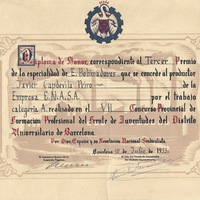 Diploma de Honor, correspondiente al Tercer Premio
de la especialidad de E. Bobinadores, que se concede al productor
Javier Capdevila Peiro de la
Empresa E.N.A.S.A. por el trabajo
categoria A, realizado en el VII Concurso Provincial de
Formación Profesional del Frente de Juventudes del Distrito
Universitario de Barcelona.
Por Dios, España y su Revolución Nacional Sindicalista
Barcelona 18 de Julio de 1953.